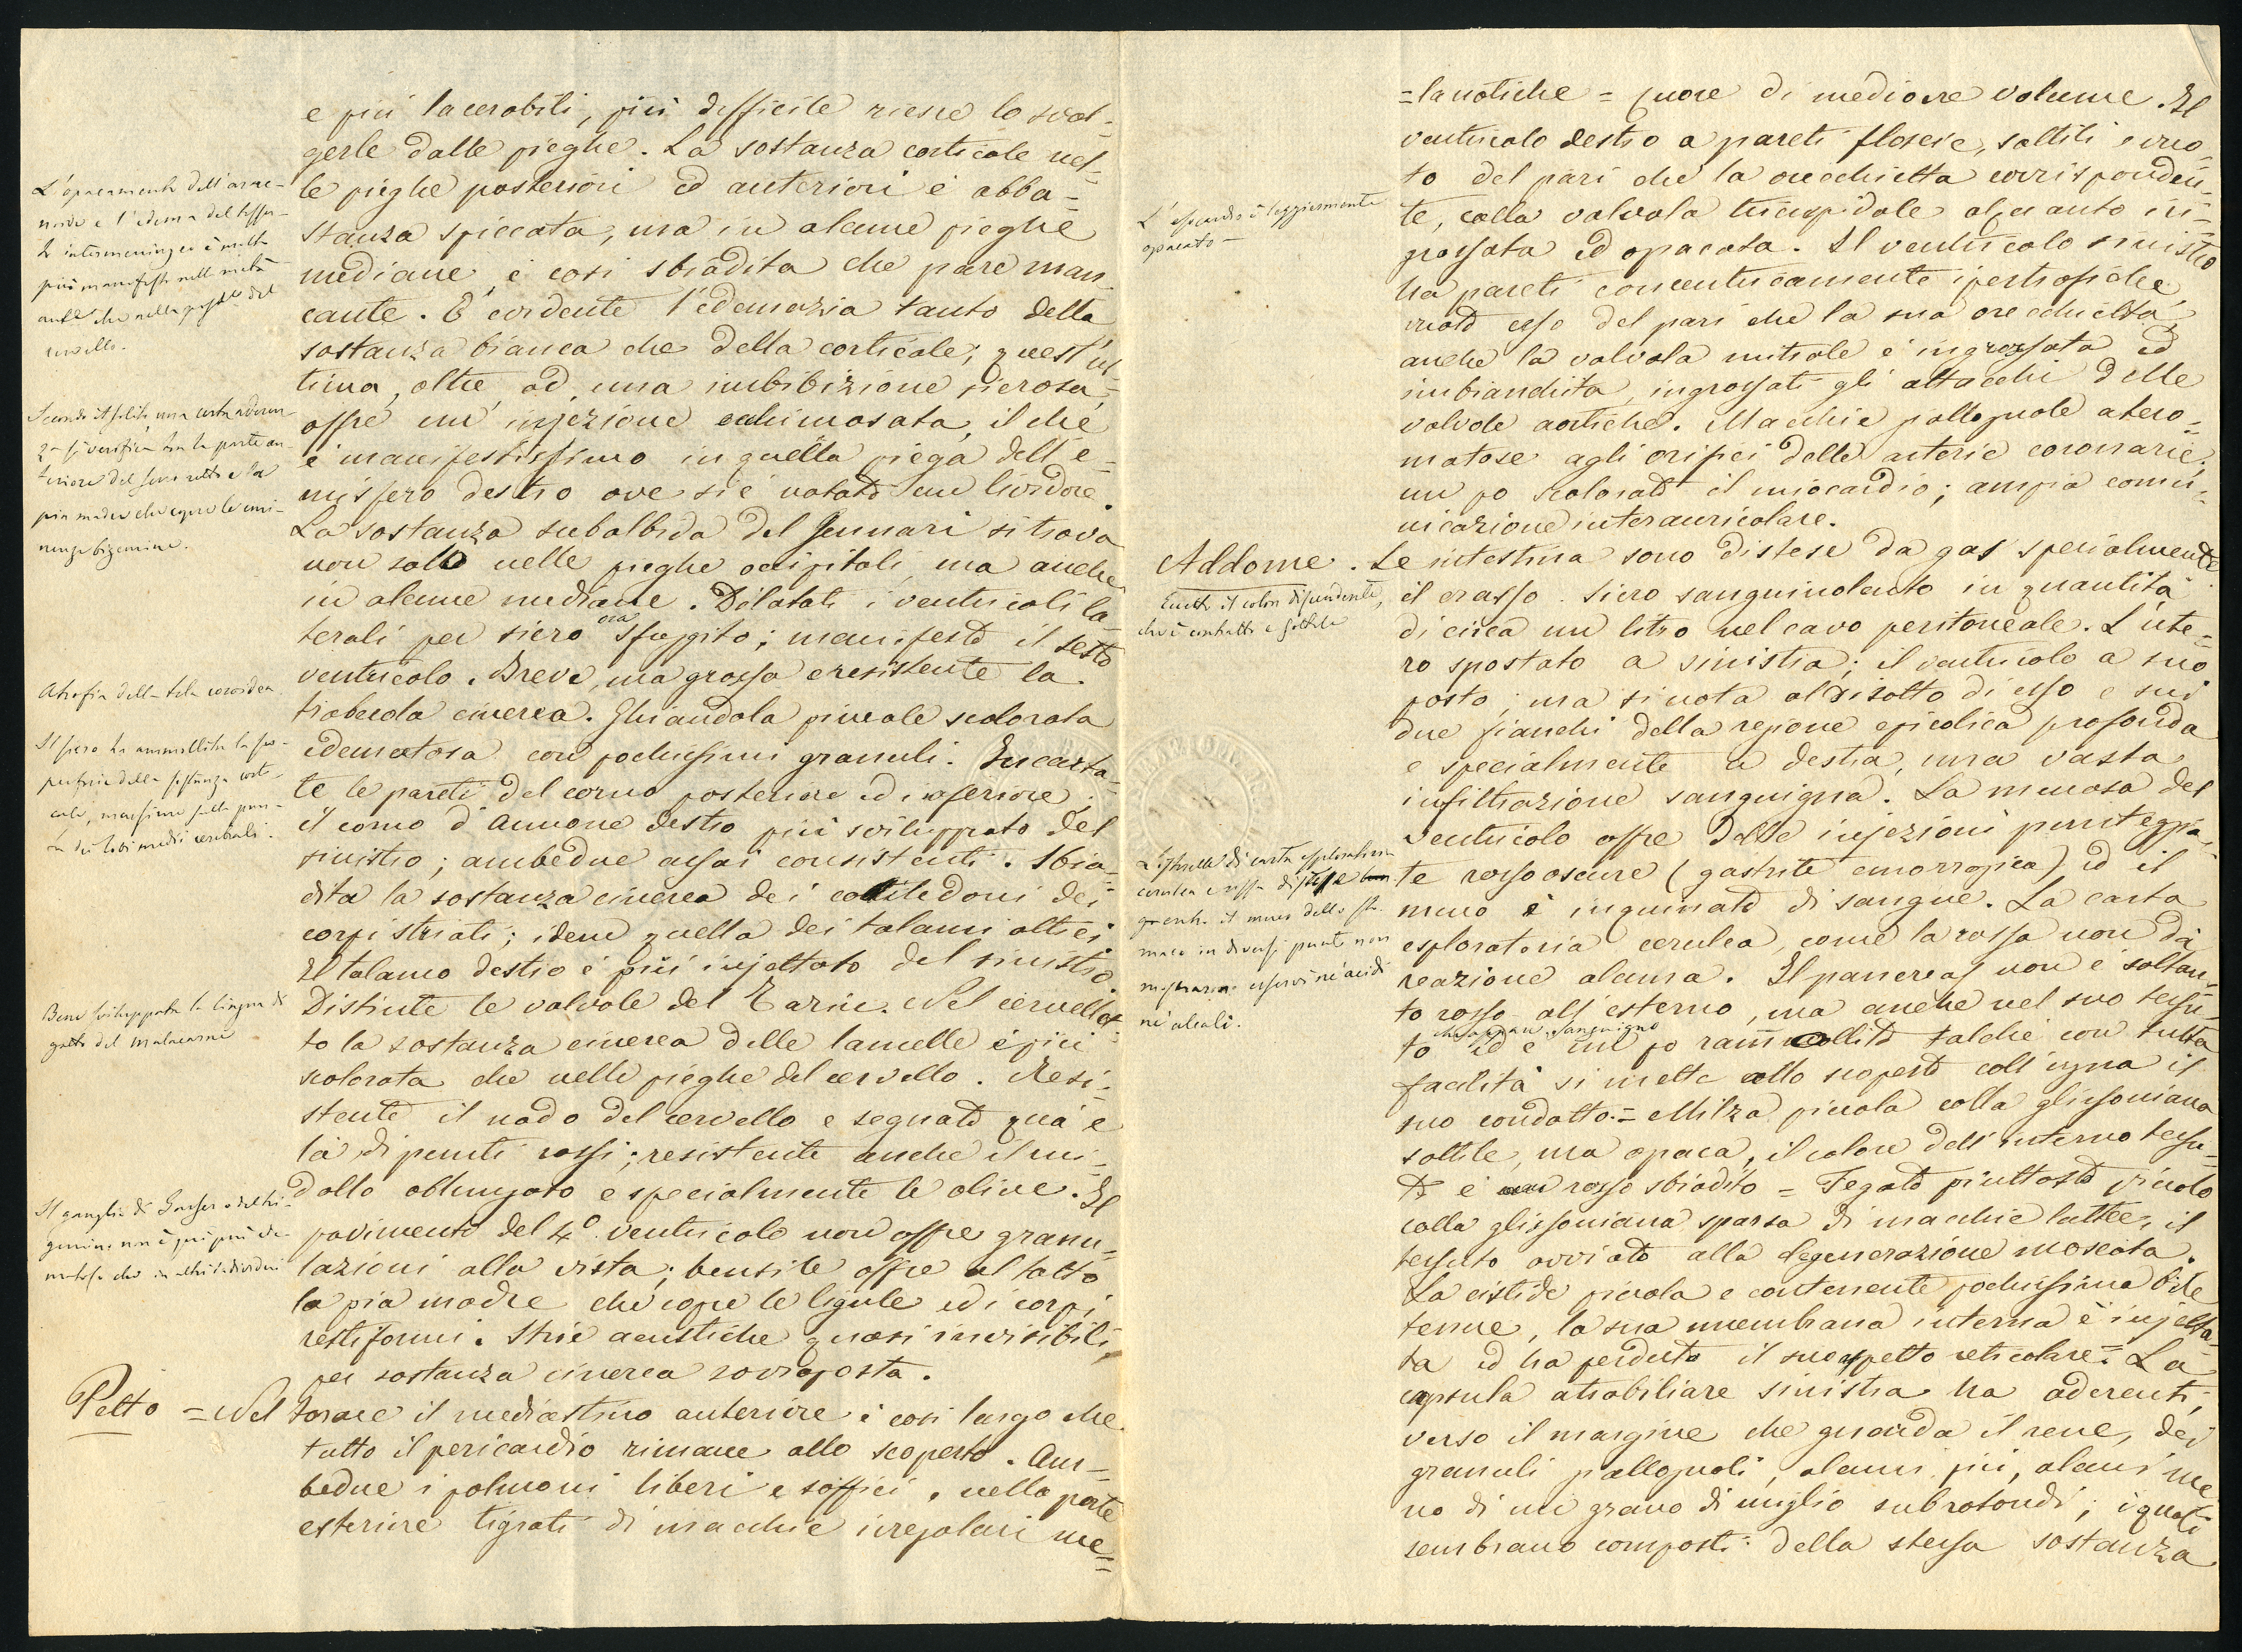 e più lacerabili, più difficile riesce lo svol=
gerle dalle pieghe. La sostanza corticale nel=
le pieghe posteriori ed anteriori è abba=
stanza spiccata, ma in alcune pieghe
mediane, è così sbiadita che pare man
cante. È evidente l'edemazia tanto della
sostanza bianca che della corticale; quest'ul=
tima, oltre ad una imbibizione sierosa,
offre un' injezione echimosata, il che
è manifestissimo in quella piega dell'e=
misfero destro ove si è notato un lividore.
La sostanza subalbida del Gennari si trova
non solo nelle pieghe occipitali, ma anche
in alcune mediane. Dilatati i ventricoli la=
terali per siero ora sfuggito; manifesto il sesto
ventricolo. Breve, ma grossa e resistente la
trabecola cinerea. Ghiandola pineale scolorata
edematosa con pochissimi granuli. Incarta=
te le pareti del corno posteriore ed inferiore;
il corno d'Ammone destro più sviluppato del
sinistro; ambedue assai consistenti. Sbia=
dita la sostanza cinerea dei cotiledoni dei
corpi striati; idem quella dei talami ottici
Il talamo destro è più injettato del sinistro.
Distinte le valvole del Tarin. Nel cervellet=
to la sostanza cinerea delle lamelle è più
scolorata che nelle pieghe del cervello. Resi=
stente il nodo del cervello e segnato quà e
là di punti rossi; resistente anche il mi=
dollo oblungato e specialmente le olive. Il
pavimento del 4° ventricolo non offre granu=
lazioni alla vista; bensì le offre al tatto
la pia madre che copre le ligule ed i corpi
restiformi. Strie acustiche quasi invisibili
per sostanza cinerea sovraposta.
Petto = Nel torace il mediastino anteriore è così largo che
tutto il pericardio rimane allo scoperto. Am=
bedue i polmoni liberi e soffici, nella parte
esteriore tigrati di macchie irregolari me=
L'opacamento dell'arac=
noide e l'edema del tessu=
to intermeningeo è molto
più manifesto nella metà
ant.e che nella post.e del
cervello.
Secondo il solito, una certa aderen
za si verifica tra la parte an
teriore del seno retto e la
pia madre che copre le emi=
nenze bigemine.
Atrofia della tela coroidea.
Il siero ha ammollita la su=
perficie della sostanza corti=
cale, massime sulla pun=
ta dei lobi medii cerebrali.
Bene sviluppata la lingua di
gatto del Malacarne
Il ganglio di Gasser del tri=
gemino non è più
=lanotiche = Cuore di mediocre volume. Il
ventricolo destro a pareti floscie, sottili e vuo=
to del pari che la orecchietta corrisponden=
te, colla valvola tricuspidale alquanto in=
grossata ed opacata. Il ventricolo sinistro
ha pareti concentricamente ipertrofiche
vuoto esso del pari che la sua orecchietta,
anche la valvola mitrale è ingrossata ed
imbianchita, ingrossati gli attacchi delle
valvole aortiche. Macchie pallognole atero=
matose agli orifici delle arterie coronarie;
un po scolorato il miocardio; ampia comu=
nicazione interauricolare.
Addome. Le intestina sono distese da gas specialmente
il crasso. Siero sanguinolento in quantità
di circa un litro nel cavo peritoneale. L'ute=
ro spostato a sinistra; il ventricolo a suo
posto; ma si nota al disotto di esso e sui
due fianchi della regione epicolica profonda
e specialmente a destra, una vasta
infiltrazione sanguigna. La mucosa del
ventricolo offre delle injezioni punteggia=
te rosso oscure (gastrite emorragica) ed il
muco è inquinato di sangue. La carta
esploratoria cerulea, come la rossa non dà
reazione alcuna. Il pancreas non è soltan=
to rosso all'esterno, ma anche nel suo tessu=
to ed è un po rammollito talchè con tutta
facilità si mette allo scoperto coll'ugna il
suo condotto. = Milza piccola colla glissoniana
sottile, ma opaca, il colore dell'interno tessu=
to è rosso sbiadito = Fegato piuttosto piccolo
colla glissoniana sparsa di macchie lattee, il
tessuto avviato alla degenerazione moscata.
La cistide piccola e contenente pochissima bile
tenue, la sua membrana interna è injetta=
ta ed ha perduto il suo aspetto reticolare. = La
capsula atrabiliare sinistra ha aderenti,
verso il margine che guarda il rene, dei
granuli pallognoli, alcuni più, alcuni me
no di un grano di miglio subrotondi; i quali
sembrano composti della stessa sostanza
L'epicardio è leggiermente
opacato =
Eccetto il colon discendente,
che è contratto e sottile
Listerelle di carta esploratoria
cerulea e rossa distese
il muco dello sto=
maco in diversi punti non
mostrarono esservi nè acidi
nè alcali.